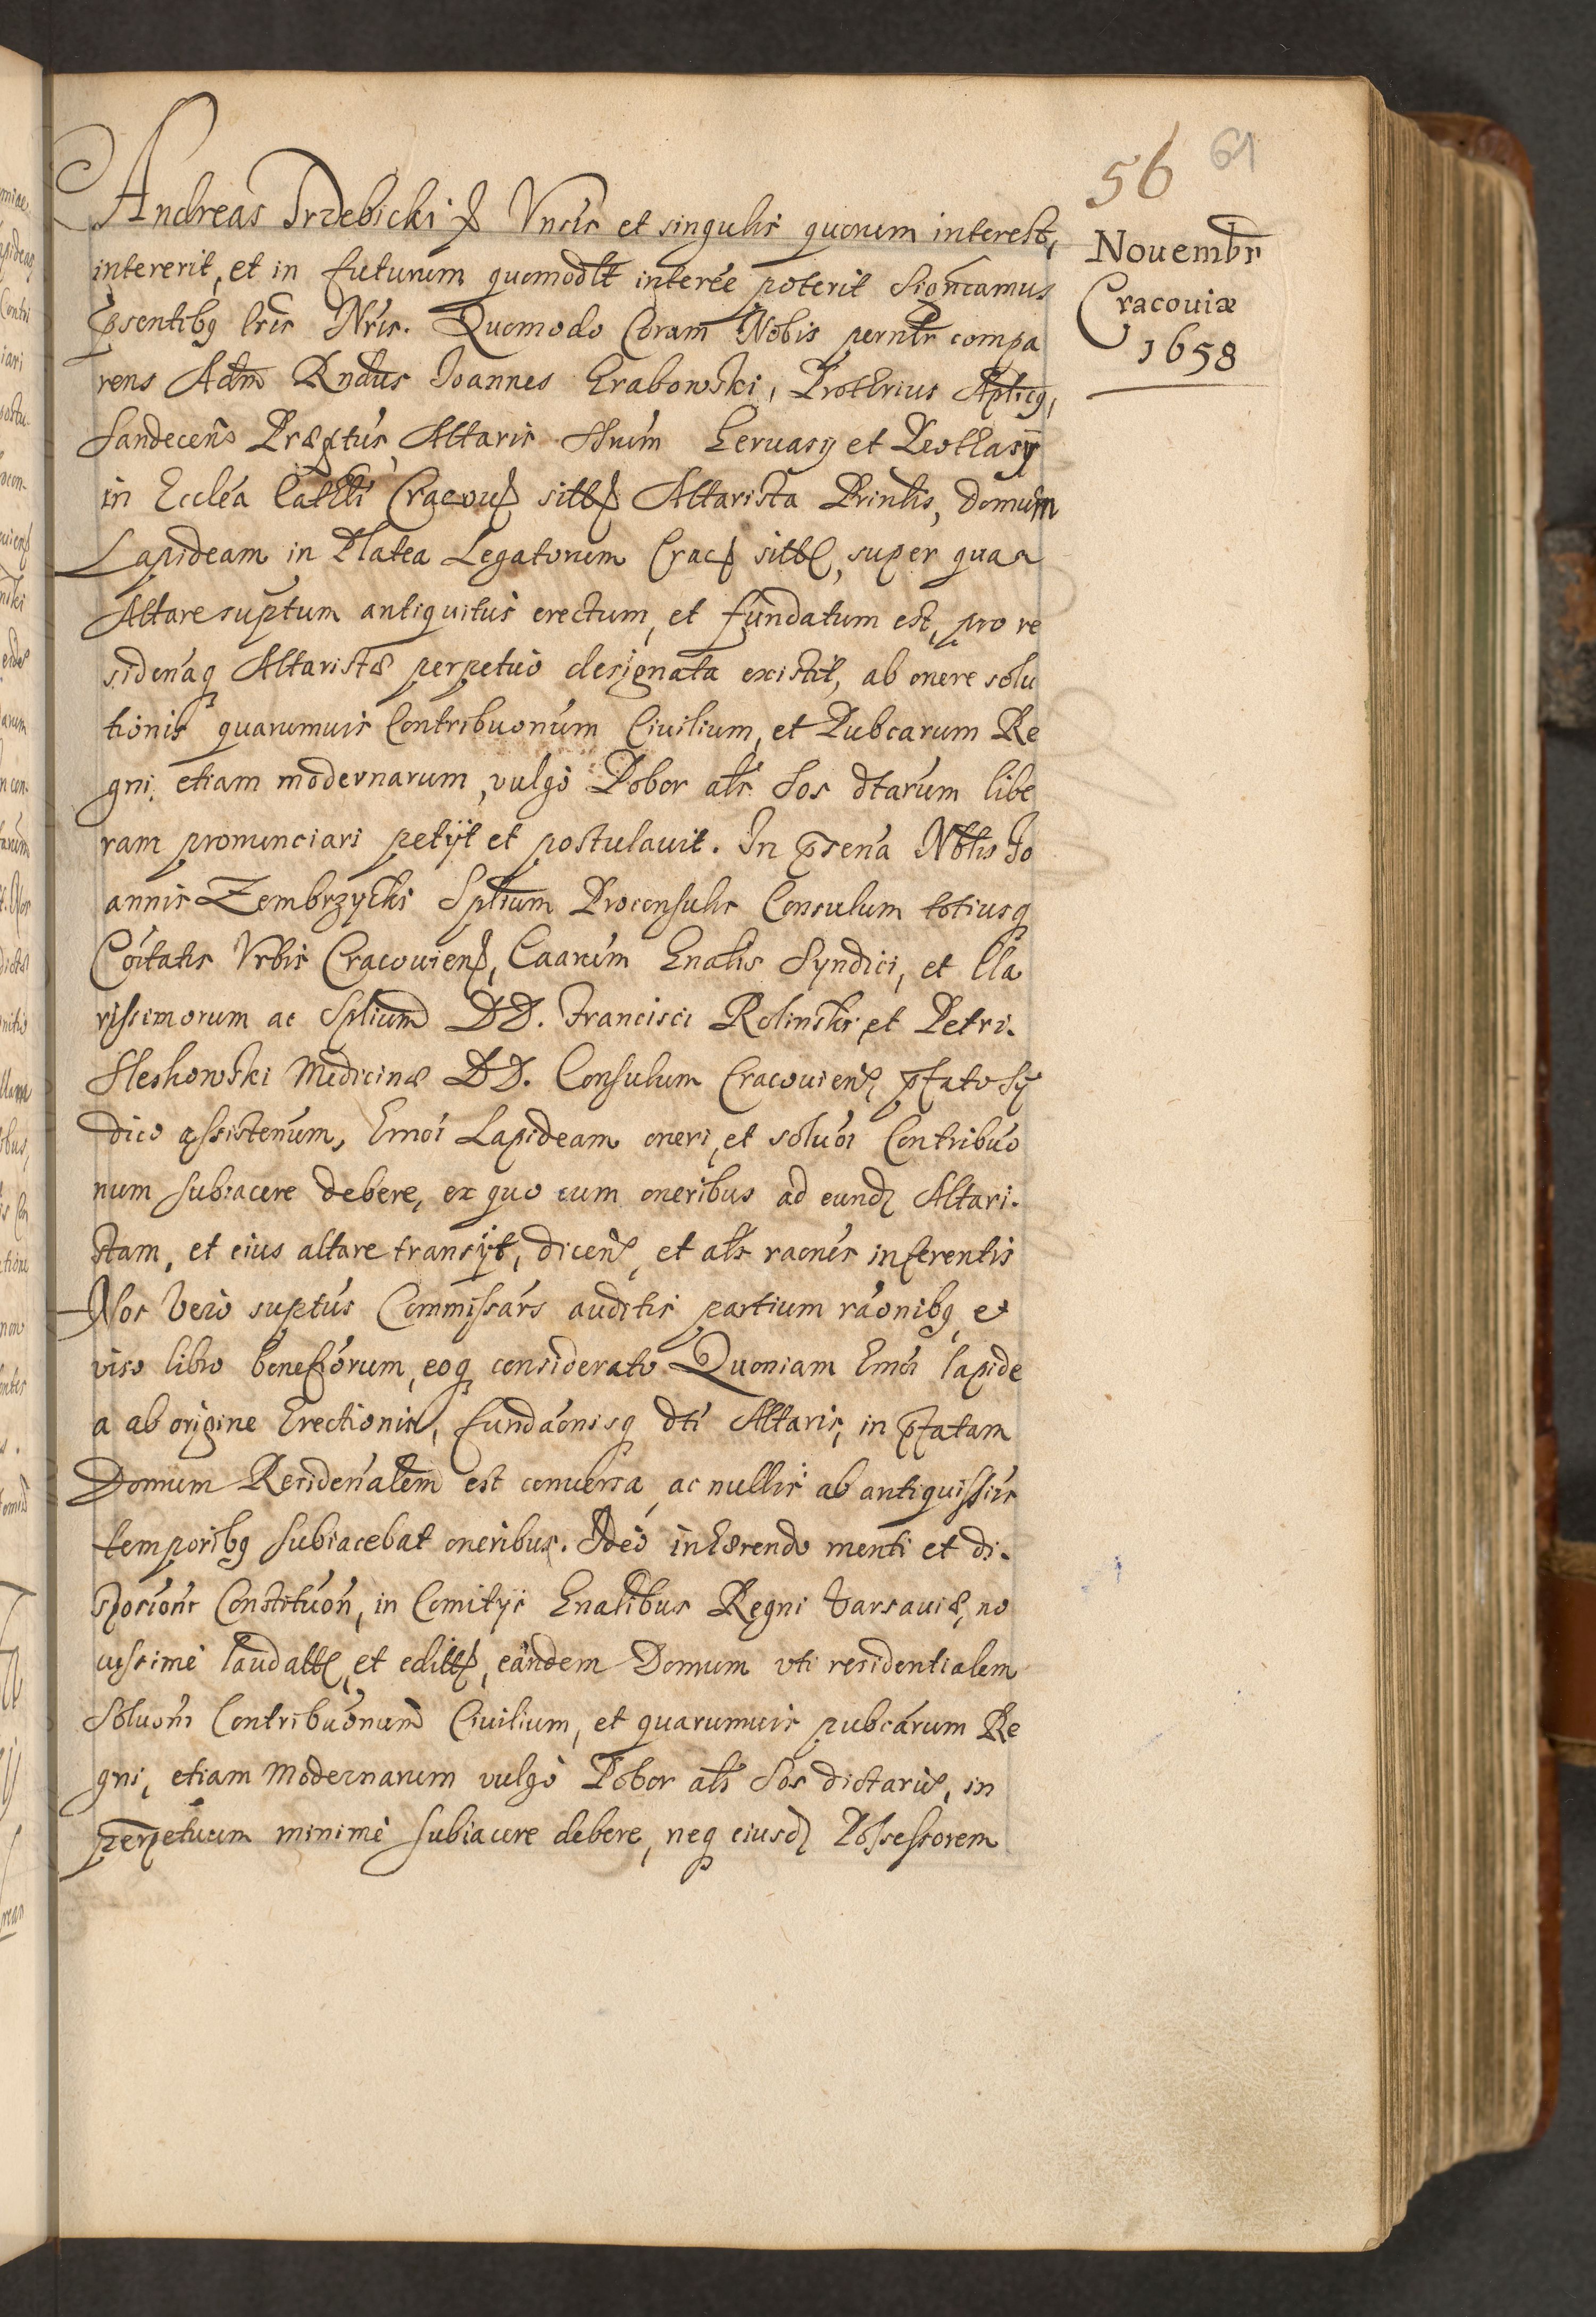 56 61
Novembr
Cracouiæ
1658
Andreas Trzebicki Vnsis et singulis quorum interest,
intererit, et in futurum quomodlt interee poterit Sioncamus
psentibq lris Nris. Quomodo Coram Nobis pernlr compa
rens Adm Rndus Joannes Grabowski, Prothrius Aplicq,
Sandecens Præptus, Altaris Sturm Geruasij et Prothasij
in Ecclea Cathli Cracou sitt Altarista Printis, domum
Lapideam in Platea Legatorum Crac sitt, super qua
Altare suptum antiquitus erectum, et fundatum est, pro re
sidenaq Altaristæ perpetuo designata existit, ab onere solu
tionis quarumuis Contribuonum Ciuilium, et Pubcarum Re
gni etiam modernarum, vulgo Pobor als Sos dtarum libe
ram pronunciari petijt et postulauit. In psena Nblis Jo
annis Zembrzycki Spltium Proconsulis Consulum totiusq
Coitatis Vrbis Cracouiens, Caarum Gnalis Syndici, et Cla
rissimorum ac Spltium DD. Francisci Rolinski et Petri
Sleskowski Medicinæ DD. Consulum Cracouiens ptato Sÿ
dico assistenum, Emoi Lapideam oneri, et soluoi Contribuo
num subiacere debere, ex quo cum oneribus ad eund Altari.
stam, et eius altare transijt, dicens, et als raones inferentis
Nos Vero suptus Commissars auditis partium raonibq, et
viso libro beneficiorum, eoq considerato Quoniam Emoi lapide
a ab origine Erectionis, fundaonisq dti Altaris, in ptatam
Domum Residenalem est conuersa, ac nullis ab antiquissis
temporibq subiacebat oneribus. Ideo inhærendo menti et di.
sposioni Constituon, in Comitijs Gnalibus Regni Varsauiæ, no
uissime laudatt, et editt, eandem Domum vti residentialem
Soluoni Contribuonum Ciuilium, et quarumuis pubcarum Re
gni, etiam Modernarum vulgo Pobor als Sos dictaru, in
perpetuum minime subiacere debere, neq eiusd Possessorem